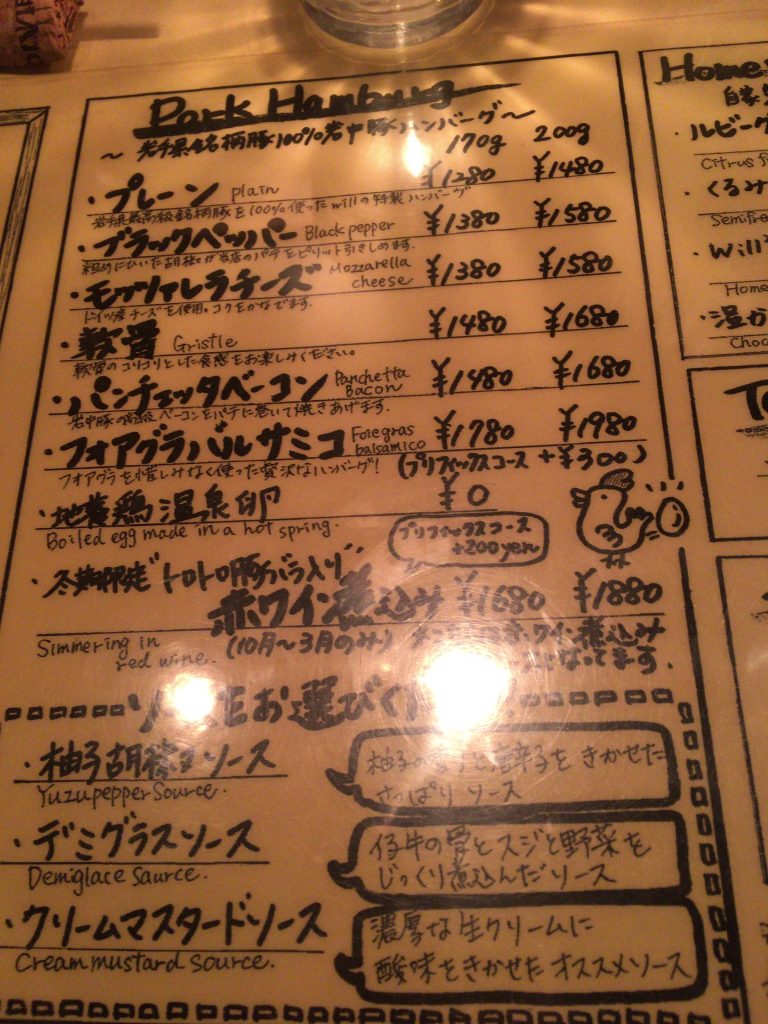 Pork Hamburg
～岩手県銘柄豚100%岩中豚ハンバーグ～
170g 200g
・プレーン plain ¥1280 ¥1480
岩手県最高級銘柄豚を100%使ったwillの特製ハンバーグ
・ブラックペッパー Black pepper ¥1380 ¥1580
粗めにひいた胡椒が当店のパテをピリット引きしめます.
・モッツァレラチーズ Mozzarella cheese ¥1380 ¥1580
ドイツ産チーズを使用。コクをかなでます.
・軟骨 Gristle ¥1480 ¥1680
軟骨のコリコリとした食感をお楽しみください。
・パンチェッタベーコン Panchetta Bacon ¥1480 ¥1680
岩中豚の高級ベーコンをパテに巻いて焼きあげます.
・フォアグラバルサミコ Foiegras balsamico ¥1780 ¥1980
フォアグラを惜しみなく使った贅沢なハンバーグ!
(プリフィックスコース +¥300)
・地養鶏温泉卵 ¥0
Boiled egg made in a hot spring.
プリフィックスコース
+200yen
・冬期限定"トロトロ豚バラ入り"
赤ワイン煮込み ¥1680 ¥1880
Simmering in
red wine.
(10月～3月のみ)
ワイン煮込み
なってます.
をお選びく
・柚子胡椒ソース
Yuzupepper Source.
柚子の
と唐辛子をきかせた
さっぱりソース
・デミグラスソース
Demiglace Saurce.
仔牛の骨とスジと野菜を
じっくり煮込んだソース
・クリームマスタードソース
Cream mustard source.
濃厚な生クリームに
酸味をきかせたオススメソース
Home
自家
・ルビーグ
Citrus f
・くるみ
Semifre
・Will
Home
・温か
Choc